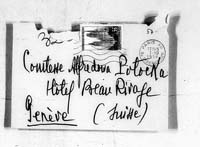 Comtesse Alfredowa Potocka
Hotel Beau Rivage
Genève (Suisse)